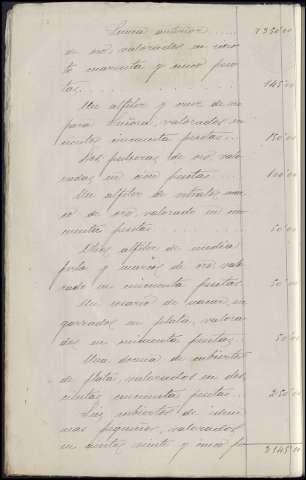 Suma anterior ..... 2350'00
de oro, valorados en cien
to cuarenta y cinco pese
tas ..... 145'00
Un alfiler y cruz de oro
para Señora, valorados en
ciento cincuenta pesetas ... 150'00
Dos pulseras de oro, valo
radas en cien pesetas ... 100'00
Un alfiler de retrato, mar
co de oro, valorado en cin
cuenta pesetas ..... 50'00
Otro alfiler de media
perla y marcos de oro, valo
rado en cincuenta pesetas
Un rosario de nacar, en
garzados en plata, valora
dos en cincuenta pesetas .. 50'00
Una docena de cubiertos
de plata, valorados en dos
cientas cincuenta pesetas ... 250'00
Seis cubiertos de idem
mas pequeños, valorados
en ciento veinte y cinco p
3145'00